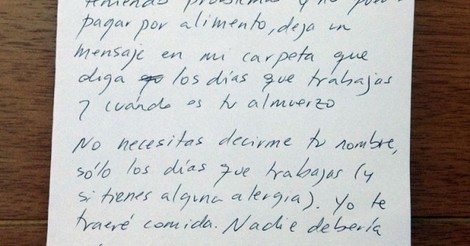 teniendo problemas y no puedes
pagar por alimento, deja un
mensaje en mi carpeta que
diga los días que trabajas
y cuándo es tu almuerzo
No necesitas decirme tu nombre,
sólo los días que trabajas (y
si tienes alguna alergia). Yo te
traeré comida. Nadie debería